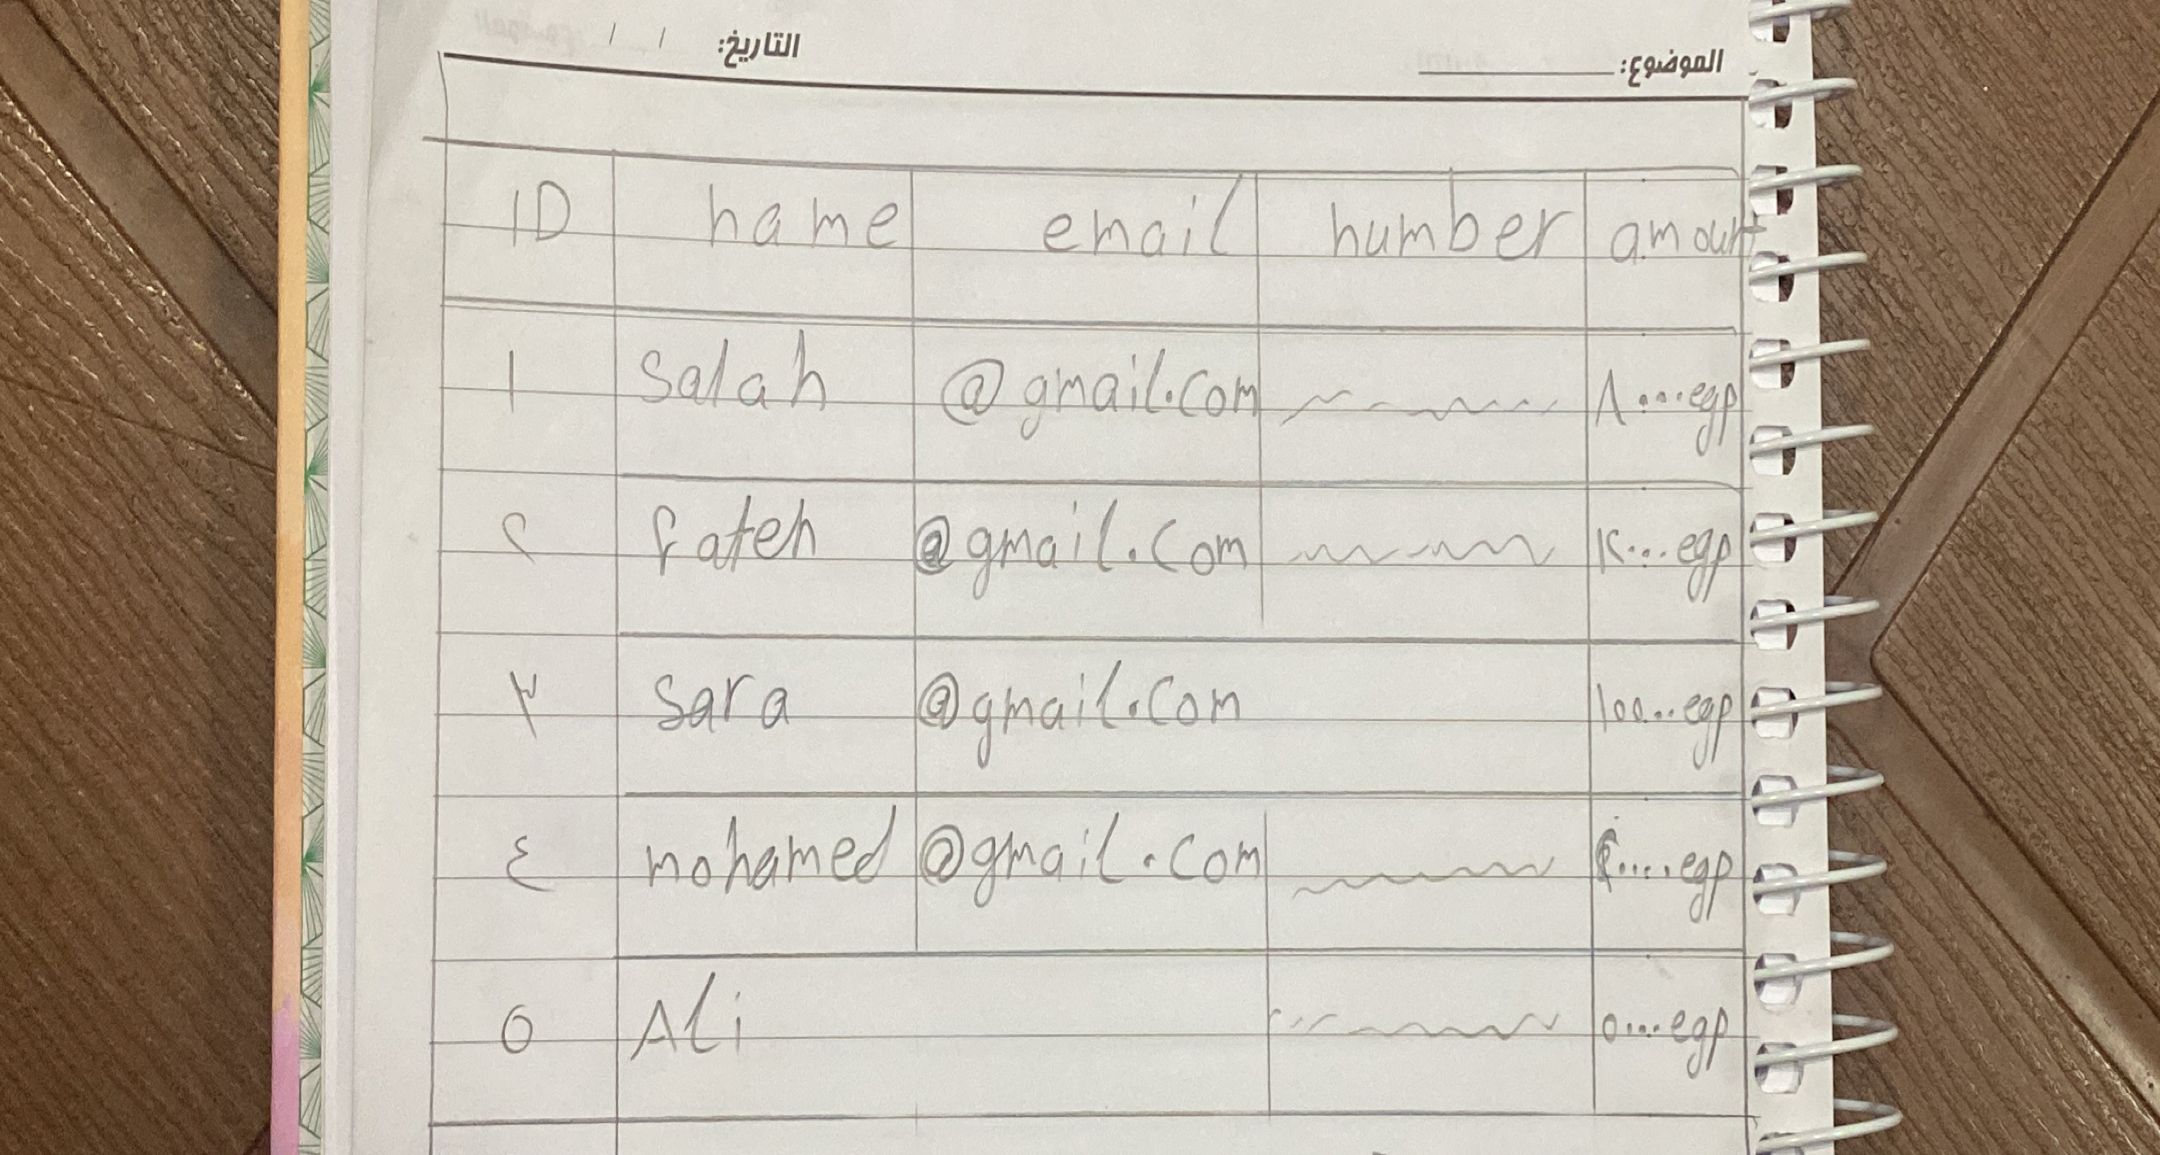 التاريخ: / /
الموضوع:
ID name email number amount
١ Salah @gmail.com ٨٠٠٠٠ egp
٢ fateh @gmail.com ١٢٠٠٠ egp
٣ Sara @gmail.com egp
٤ mohamed @gmail.com egp
٥ Ali ٥٠٠٠٠ egp